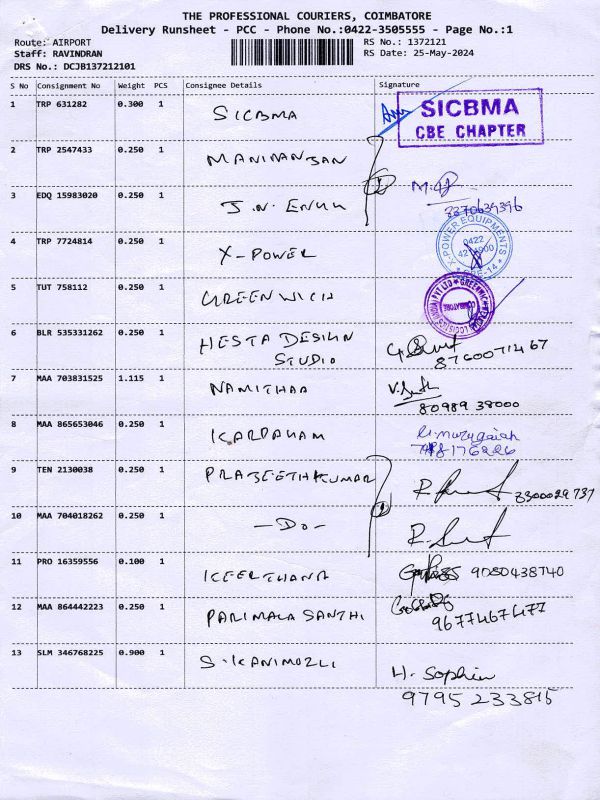 THE PROFESSIONAL COURIERS, COIMBATORE
Delivery Runsheet - PCC - Phone No.:0422-3505555 - Page No.:1
Route: AIRPORT RS No.: 1372121
Staff: RAVINDRAN RS Date: 25-May-2024
DRS No.: DCJB137212101
S No Consignment No Weight PCS Consignee Details Signature
1 TRP 631282 0.300 1 SICBMA SICBMA
CBE CHAPTER
2 TRP 2547433 0.250 1
3 EDQ 15983020 0.250 1 J.N. 
4 TRP 7724814 0.250 1 X-POWER X-POWER EQUIPMENTS
0422
5 TUT 758112 0.250 1 GREENWICH
COIMBATORE
6 BLR 535331262 0.250 1 HESTA DESIGN
STUDIO 8760071467
7 MAA 703831525 1.115 1 NAMITHAA
80989 38000
8 MAA 865653046 0.250 1
9 TEN 2130038 0.250 1 PRAJEETHKUMAR
10 MAA 704018262 0.250 1 -DO-
11 PRO 16359556 0.100 1 KEERTHANA 9080438740
12 MAA 864442223 0.250 1 PARIMALA SANTHI
9677467477
13 SLM 346768225 0.900 1 S.KANIMOZLI
H. Sophia
9795 233815